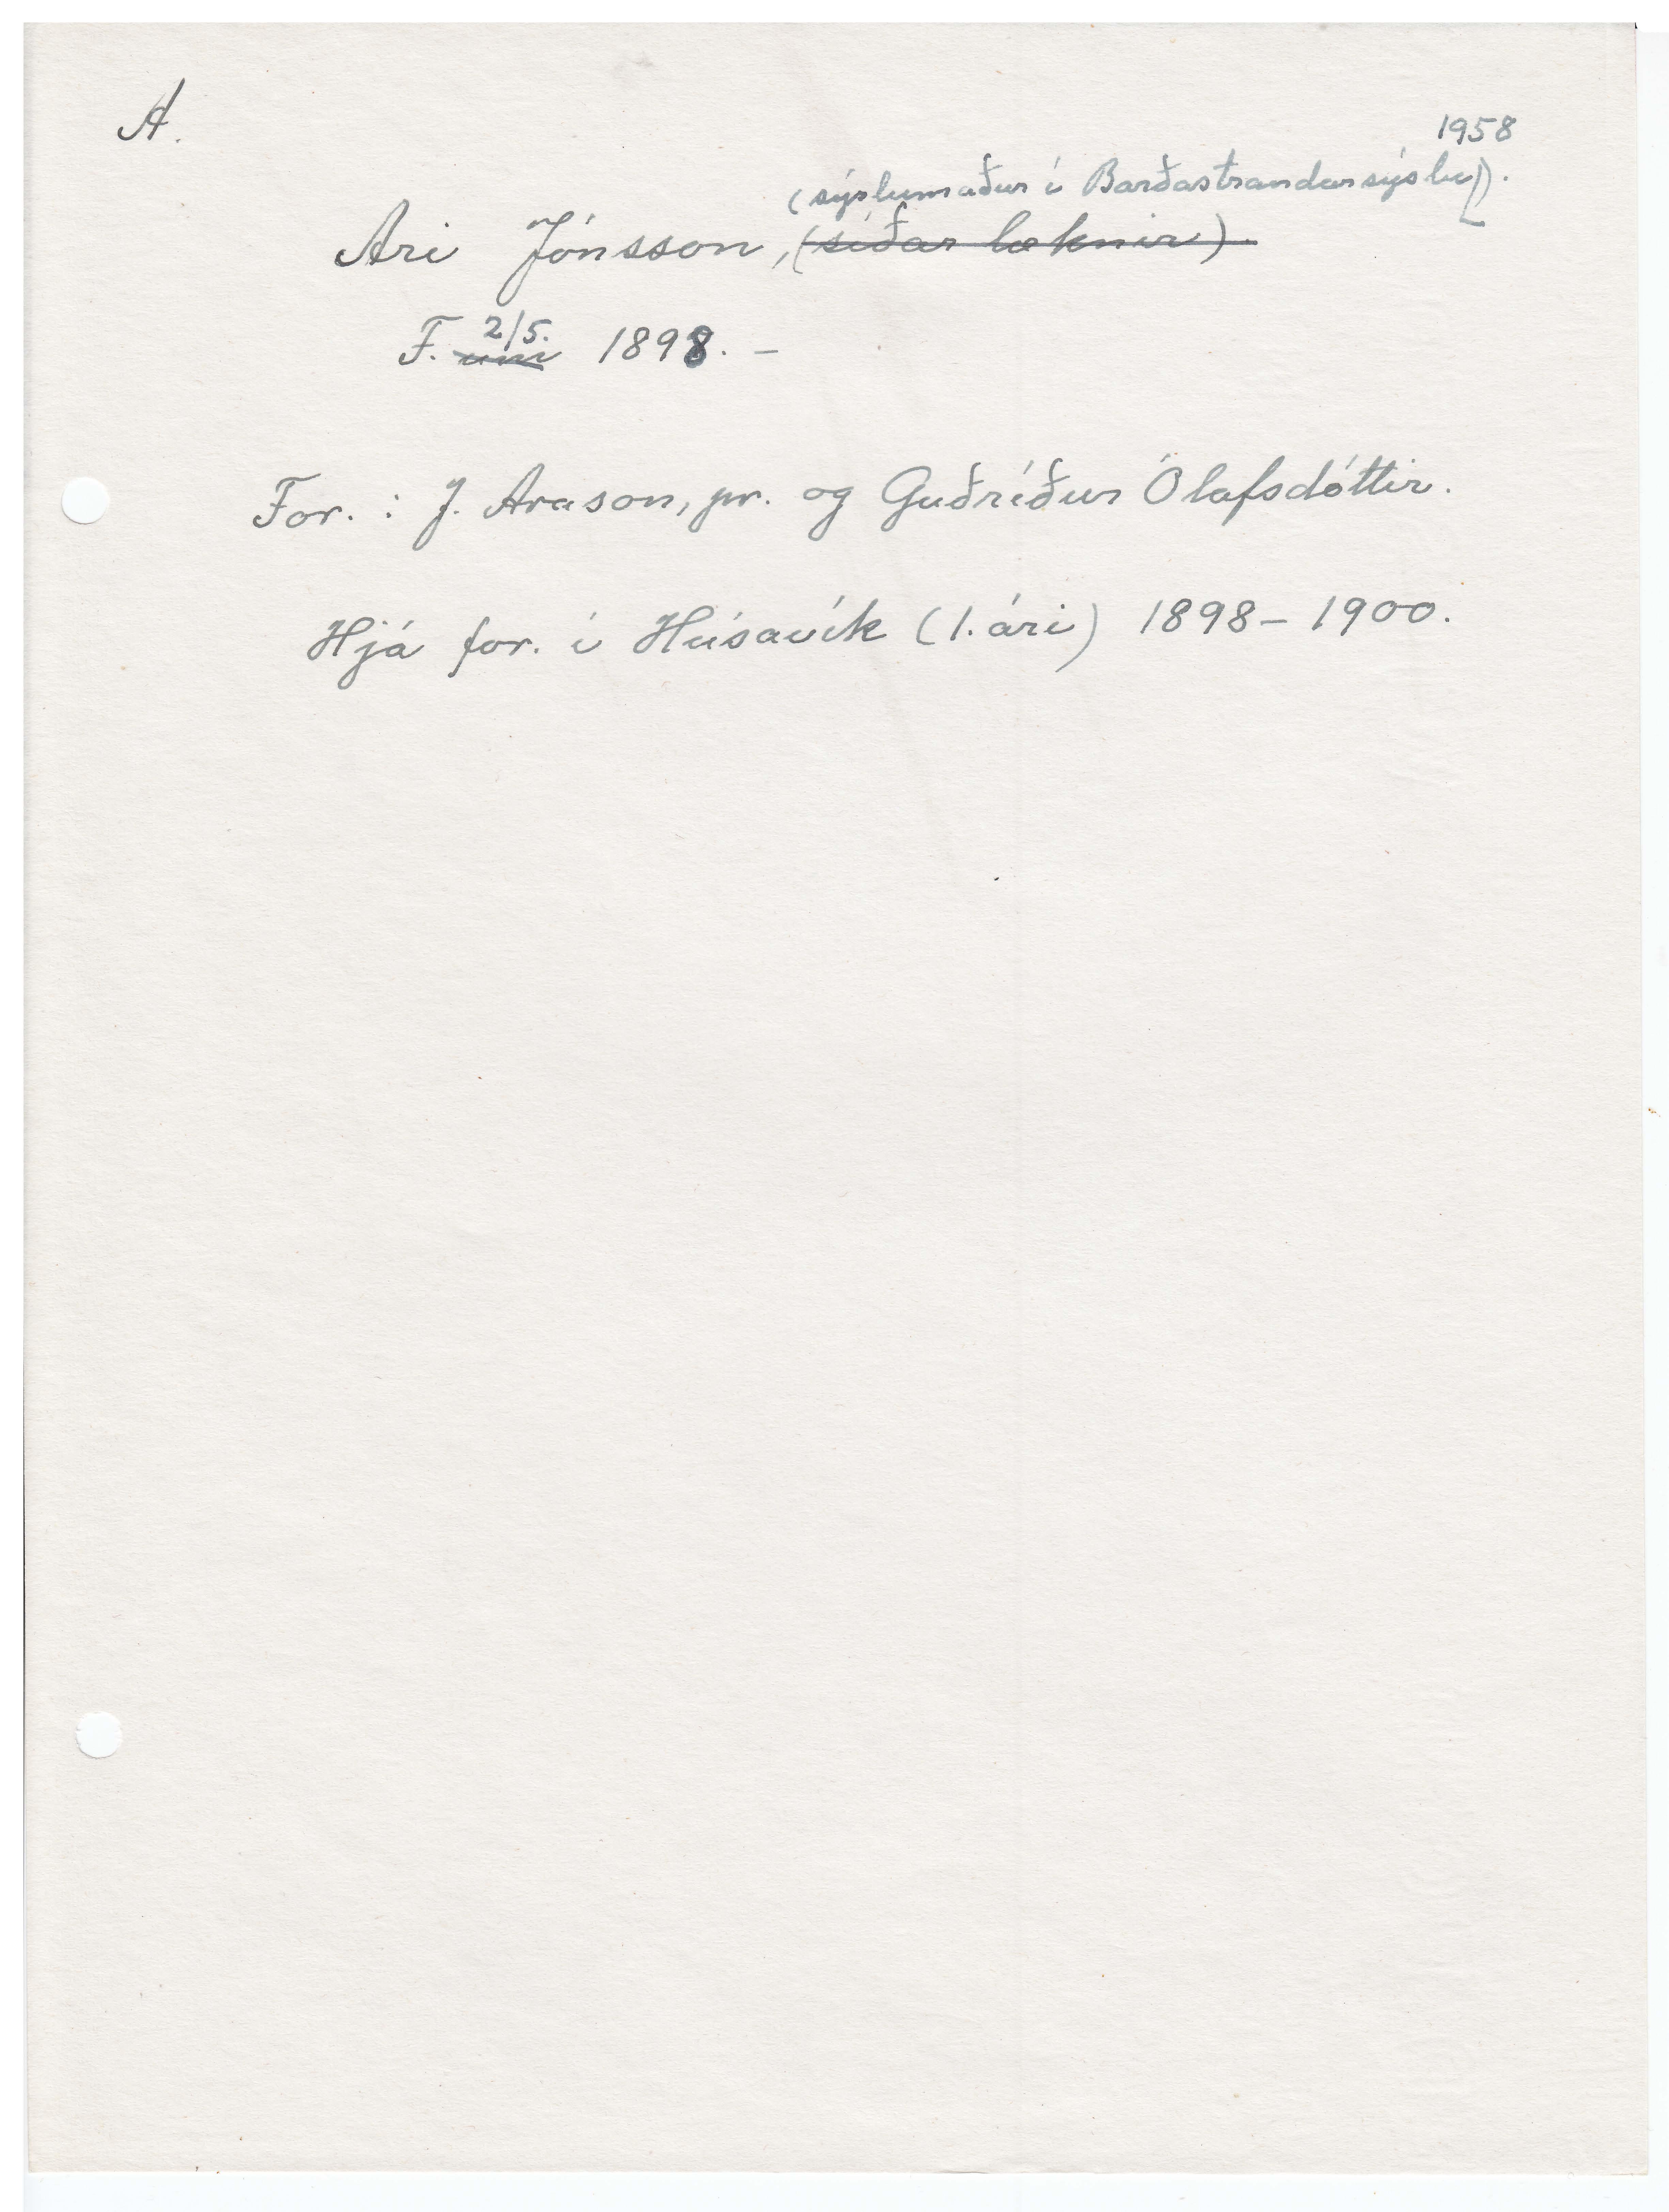 A.
1958
(sýslumaður í Barðastrandarsýslu).
Ari Jónsson, (síðar læknir).
F. um 2/5. 1898. –
For. : J. Arason, pr. og Guðríður Ólafsdóttir.
Hjá for. í Húsavík (1. ári) 1898 – 1900.